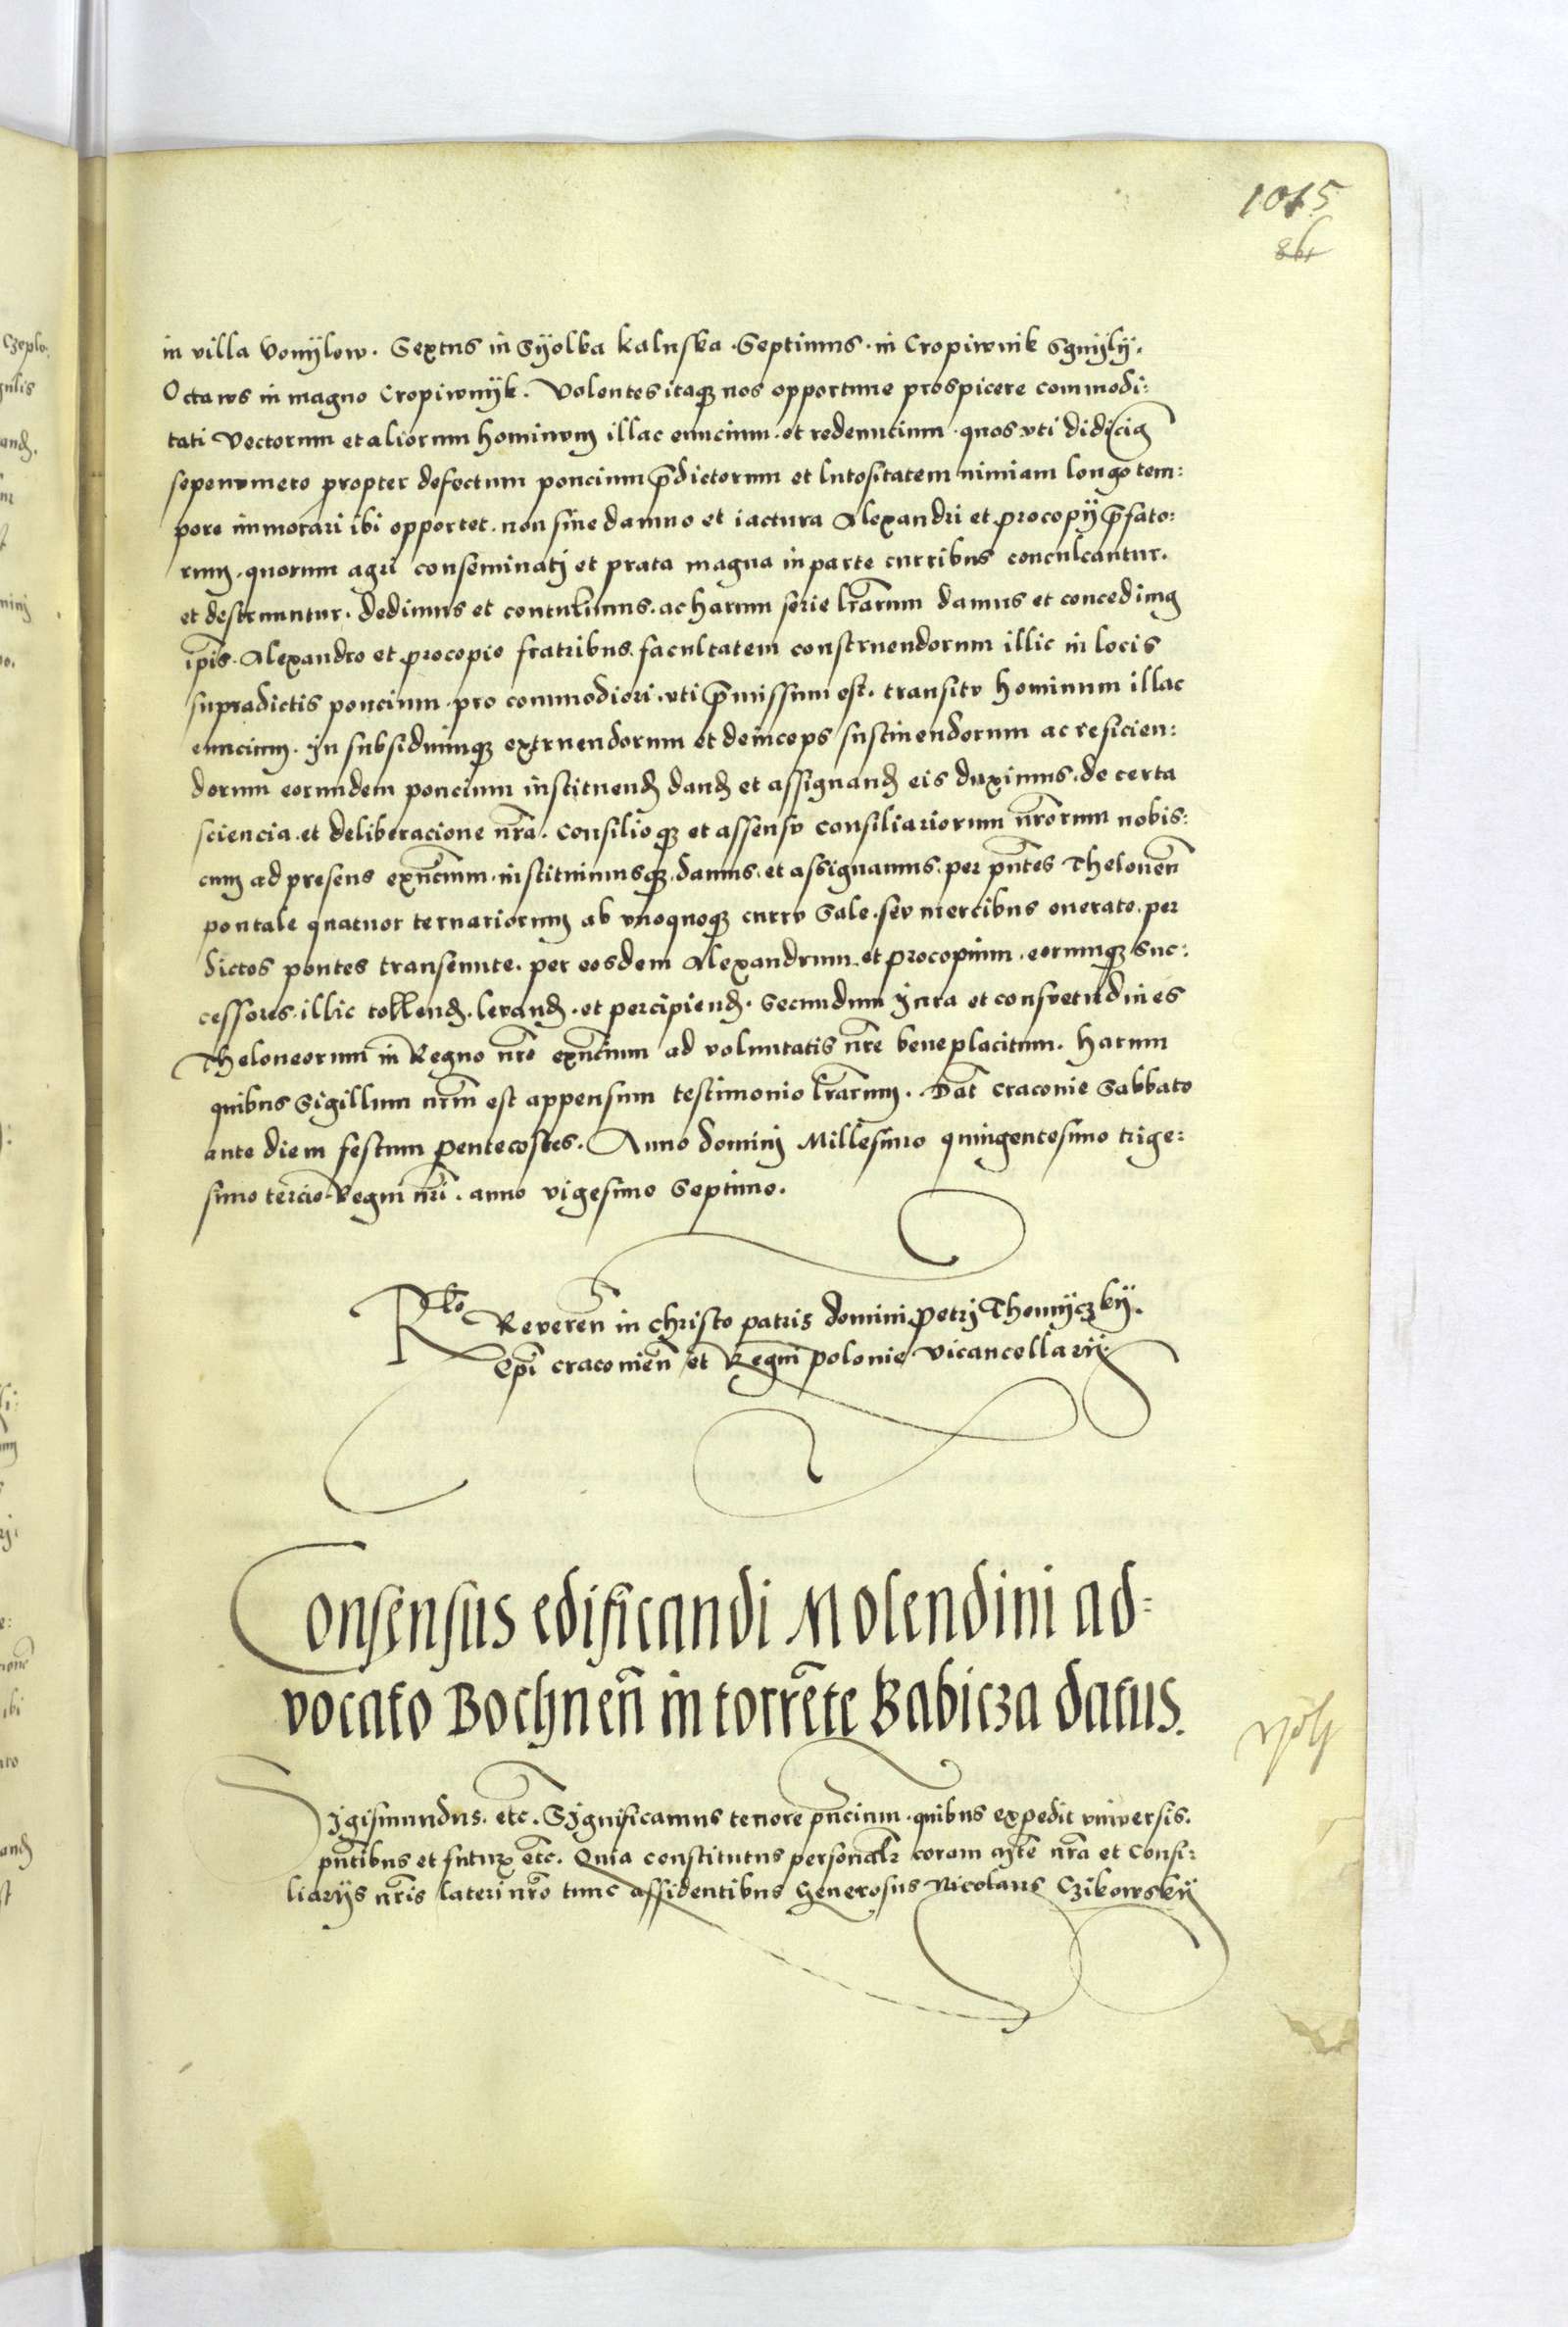 1015
in villa Vonÿlow. Sextus in Sÿolka kaluska. Septimus. in Cropiwnik Sgnÿlÿ.
Octavus in magno Cropiwnÿk. Volentes itaq nos opportune prospicere commodi:
tati Vectorum et aliorum hominum illac euncium. et redeuncium. quos vti didicim9
sepenumero propter defectum poncium p̃dictorum et lutositatem nimiam longo tem:
pore inmorari ibi opportet. non sine damno et iactura Alexandri et procopÿ p̃fato:
rum. quorum agri conseminatj et prata magna in parte curribus conculcantur.
et destruuntur. dedimus et contulimus. ac harum serie lr̃arum damus et concedim9
ip̃is. Alexandro et procopio fratribus. facultatem construendorum illic in locis
supradictis poncium. pro commodiori. vti p̃missum est. transitu hominum illac
euncium. In subsidiumq extruendorum et deinceps sustinendorum ac reficien:
dorum eorundem poncium instituend dand et assignand eis duximus. de certa
sciencia. et deliberacione nr̃a. consilioq et assensu consiliariorum nr̃orum nobis:
cum ad presens exn̄cium. instituimusq. damus. et assignamus. per pn̄tes Thelonen̄
pontale quatuor ternariorum ab vnoquoq curru Sale. seu mercibus onerato. per
dictos pontes transeunte. per eosdem Alexandrum et procopium. eorumq suc:
cessores. illic tollend. levand. et percipiend. Secundum Jura et consuetudines
Theloneorum in Regno nr̃o exn̄cium ad voluntatis nr̃e beneplacitum. harum
quibus Sigillum nr̃m est appensum testimonio lr̃arum. Dat̃ Cracovie Sabbato
ante diem festum pentecostes. Anno dominj Millesimo quingentesimo trige:
simo tercio. Regni nr̃i. anno vigesimo Septimo.
Rlo Reveren̄ in christo patris domini petrj Thomÿczkÿ.
Ep̃i cracovien̄ et Regni polonie vicancellarÿ.
Consensus edificandi Molendini ad=
vocato Bochnen̄ in torrēte Babicza datus.
Sigismundus. etc̃. Significamus tenore pn̄cium. quibus expedit vniversis.
pn̄tibus et futur etc̃. Quia constitutus personalr̃ coram mt̃e nr̃a et Consi:
liarÿs nr̃is lateri nr̃o tunc assidentibus Generosus Nicolaus Czikowskÿ